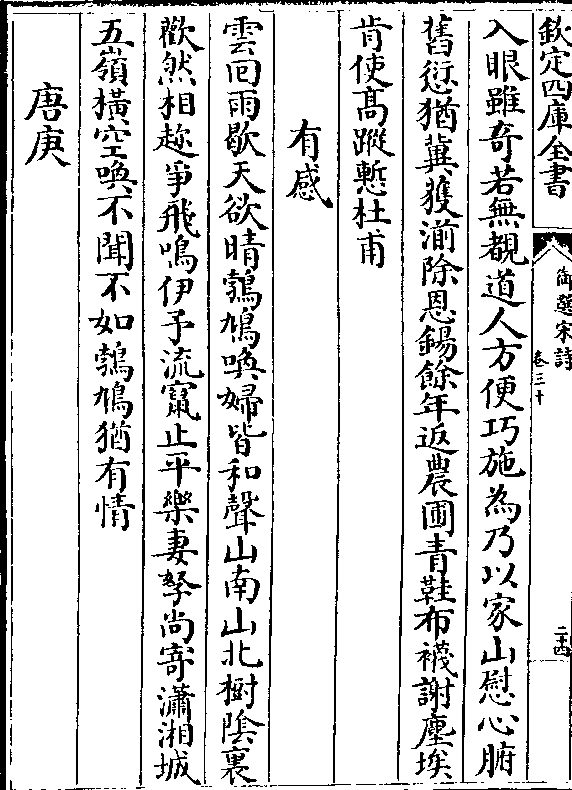 欽定四庫全書
御選宋詩
卷三十
二十四
入眼雖奇若無覩道人方便巧施為乃以家山慰心腑
舊愆猶冀獲湔除恩錫餘年返農圃青鞋布襪謝塵埃
肯使高蹤慙杜甫
有感
雲囘雨歇天欲晴鵓鳩喚婦皆和聲山南山北樹陰裏
歡然相趂爭飛鳴伊予流竄止平樂妻孥尚寄瀟湘城
五嶺橫空喚不聞不如鵓鳩猶有情
唐庚